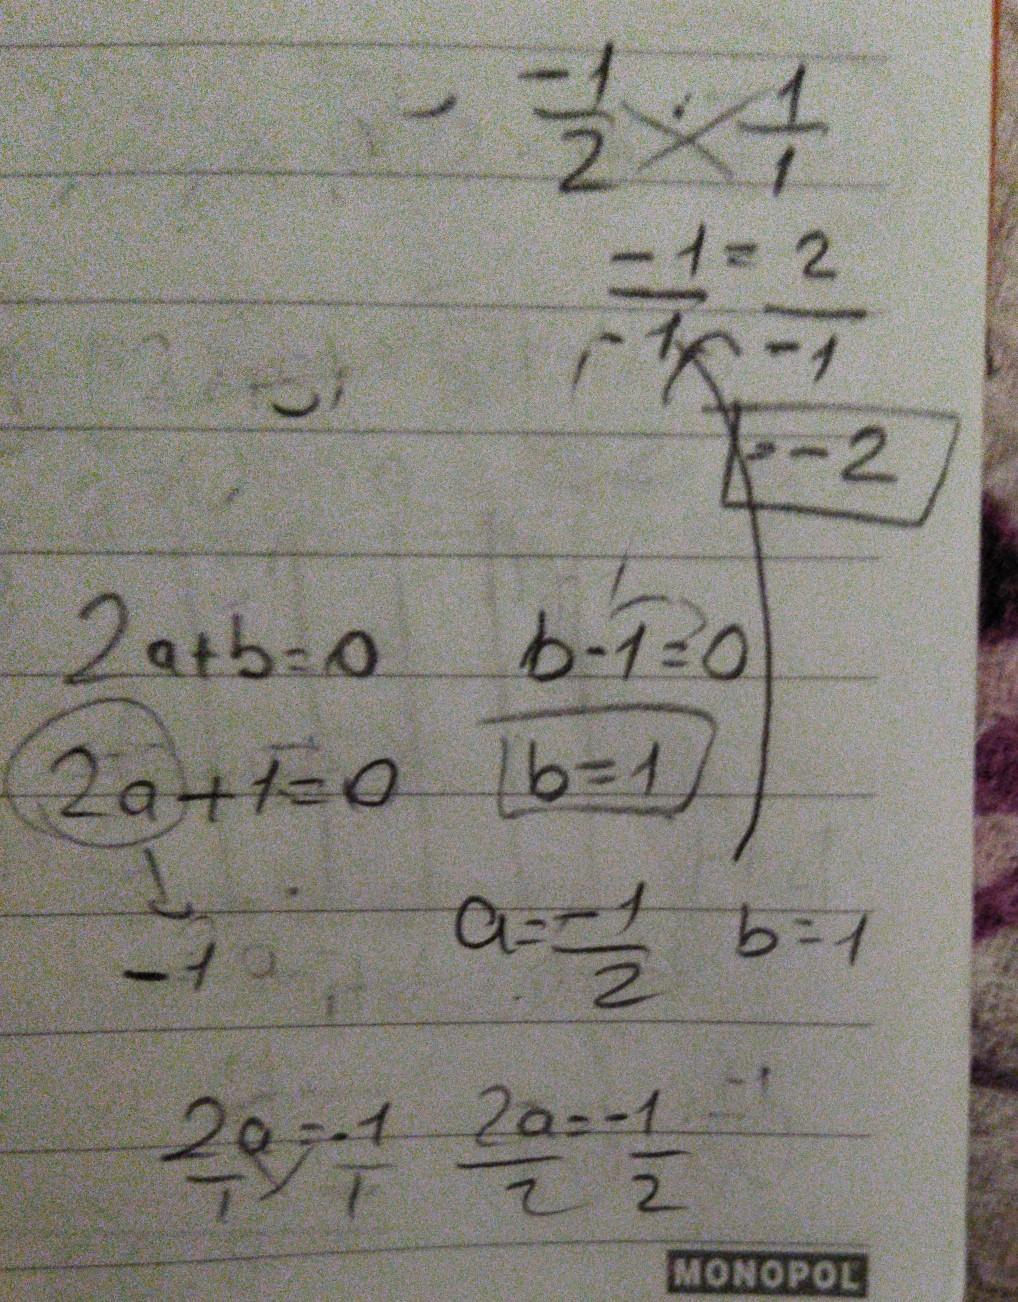 -1/2 · 1/1
-1/-1 = 2/-1
= -2
2a+b=0 b-1=0
2a+1=0 b=1
-1 a=-1/2 b=1
2a/1=-1/1 2a/2=-1/2
MONOPOL